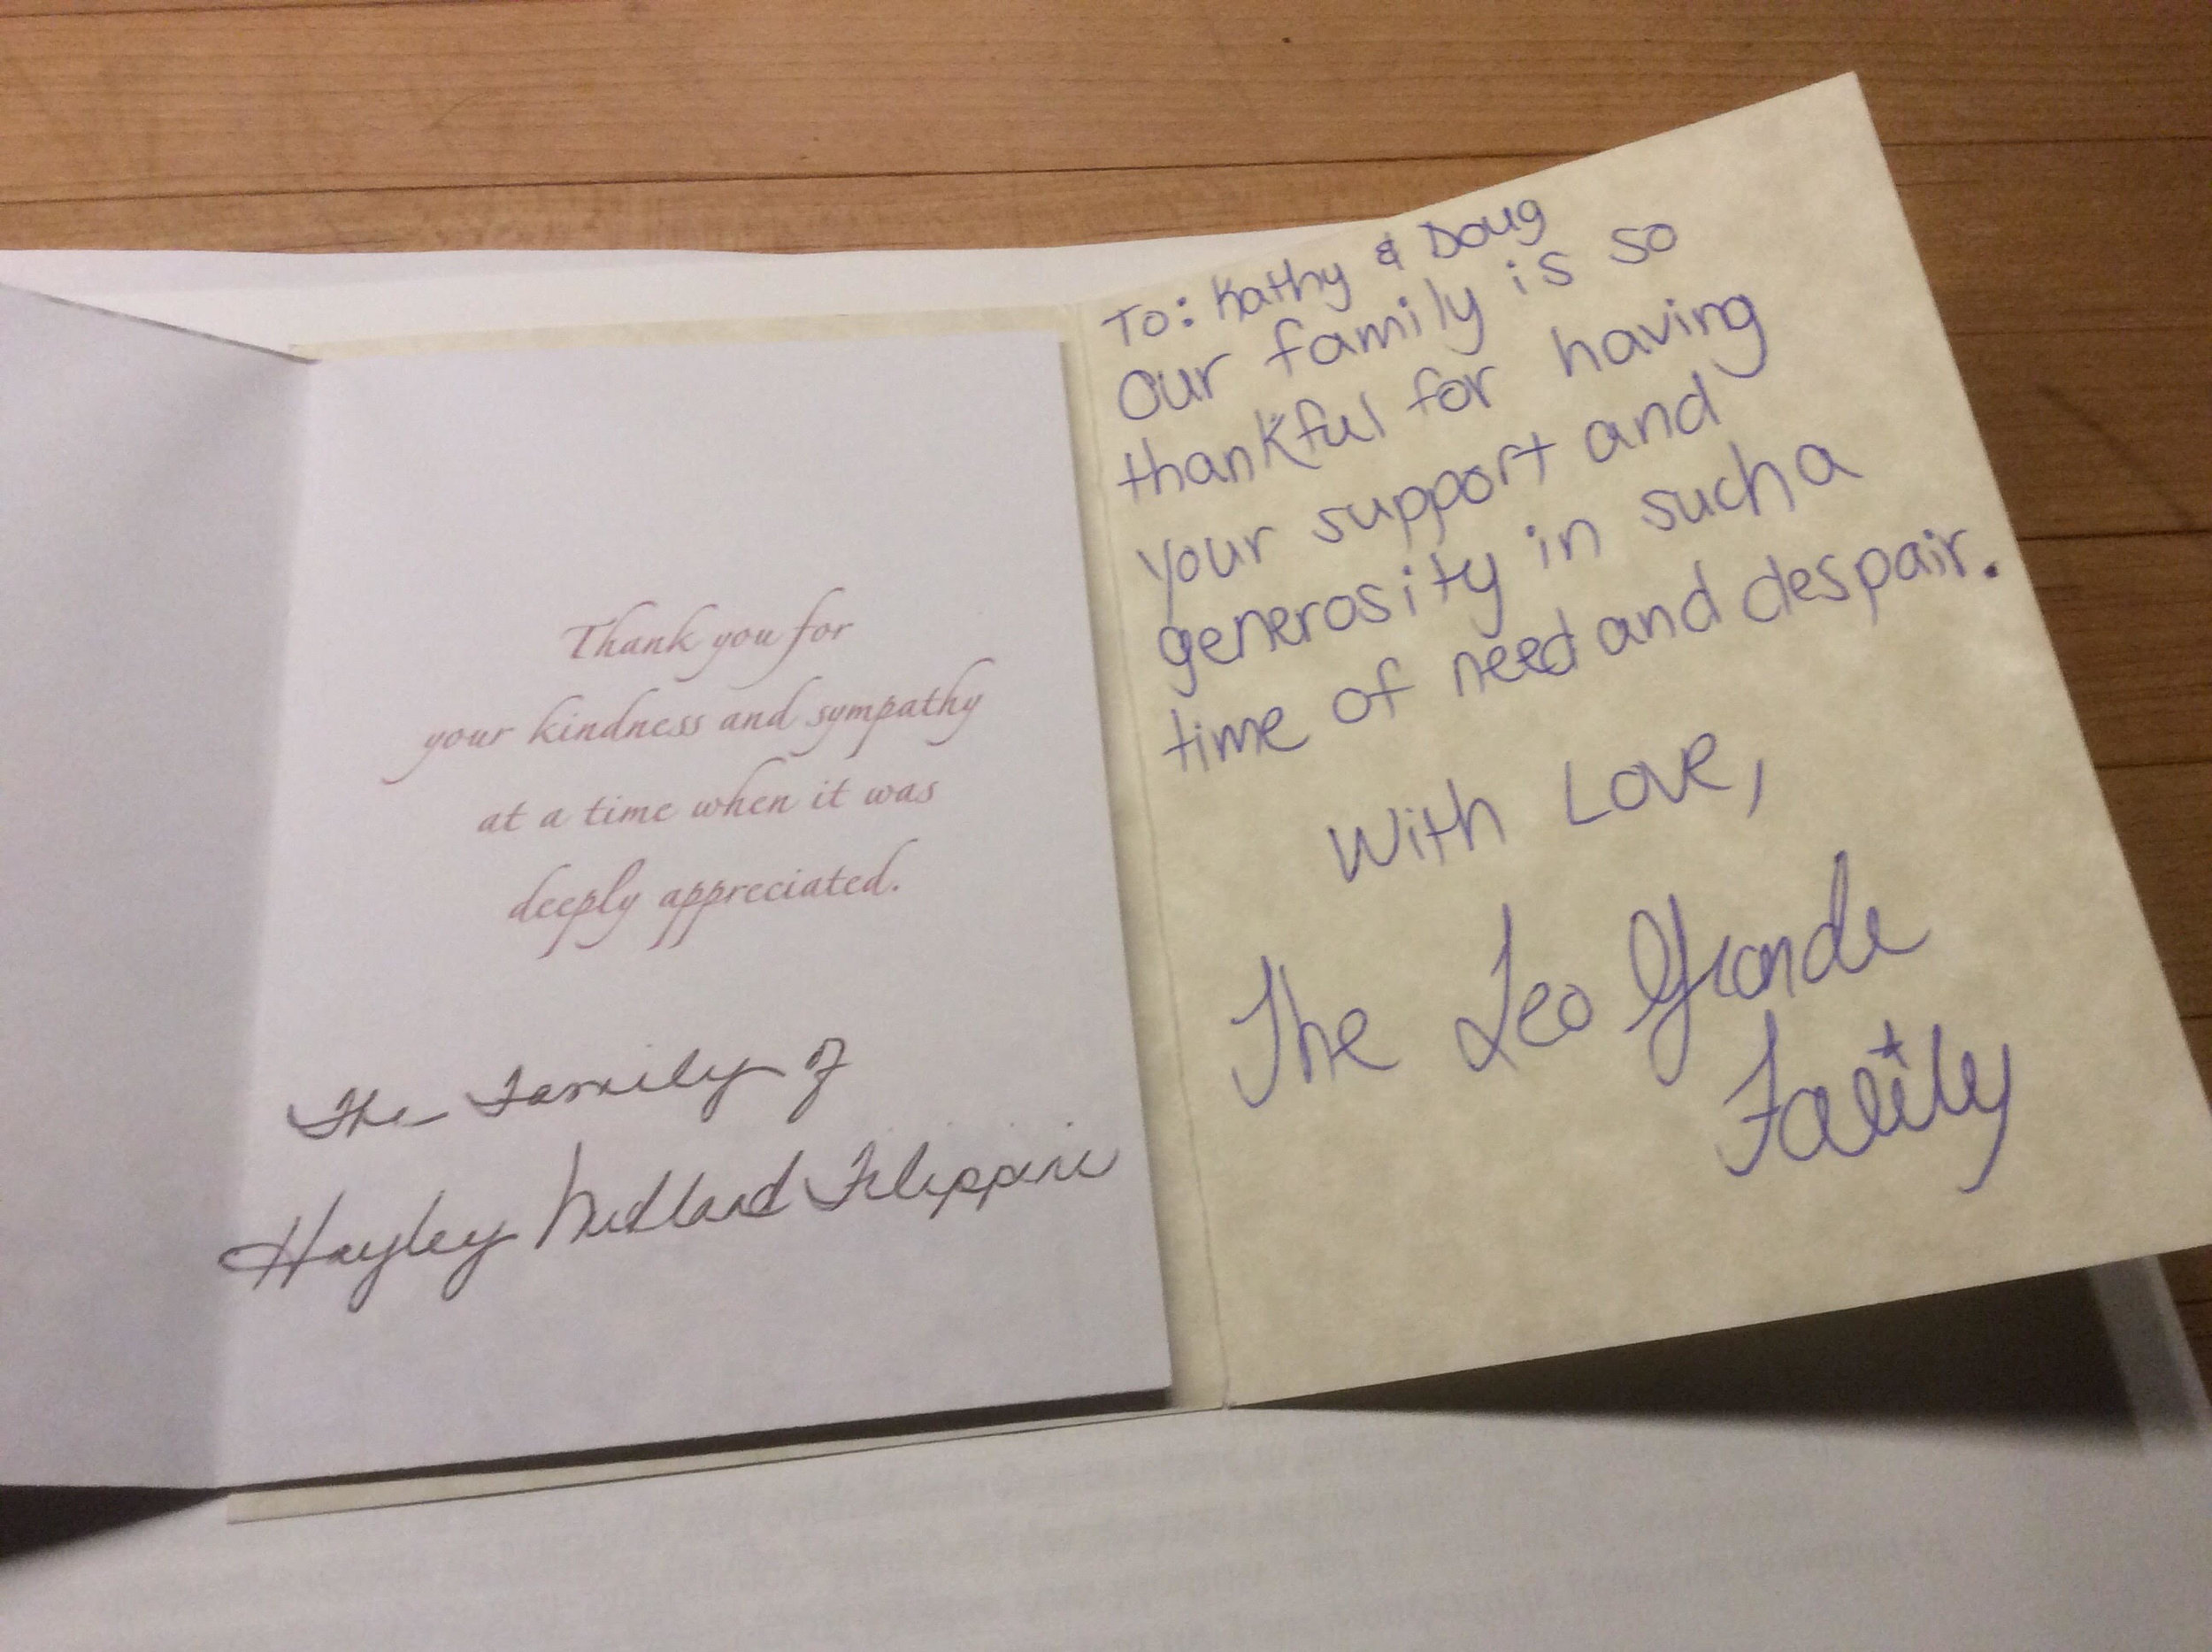 Thank you for
your kindness and sympathy
at a time when it was
deeply appreciated.
The Family of
Hayley Filippini
To: Kathy & Doug
Our family is so
thankful for having
your support and
generosity in such a
time of need and despair.
With Love,
The Leo Grande
Family